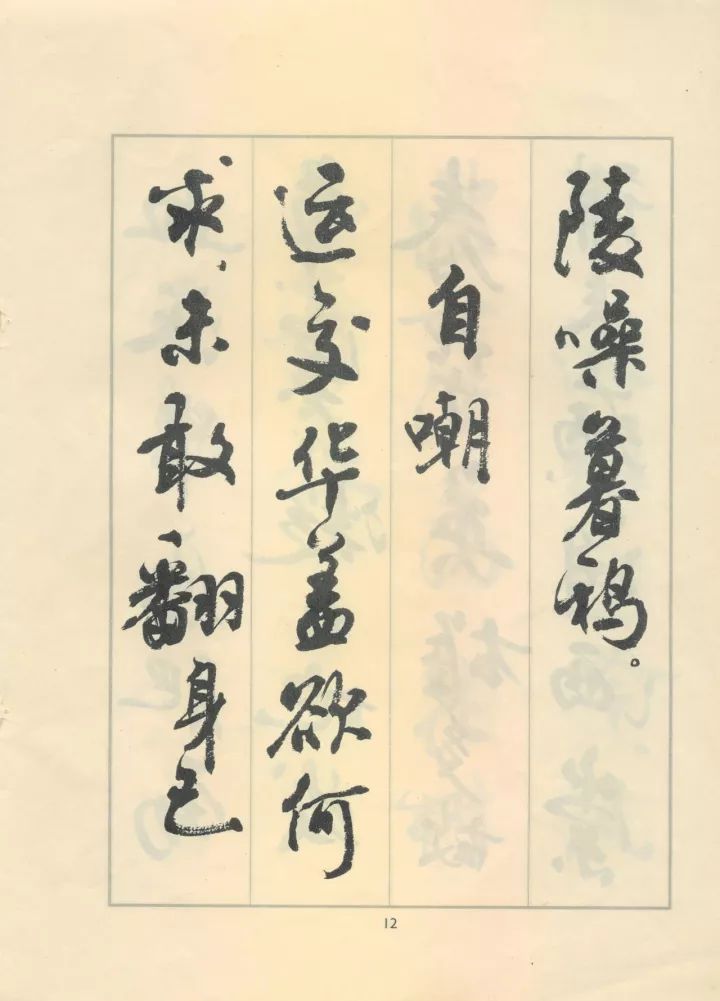 陵噪暮鸦。
自嘲
运交华盖欲何
求,未敢翻身已
12